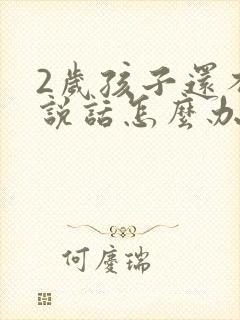 2歲孩子還
說話怎麼办
何慶瑞